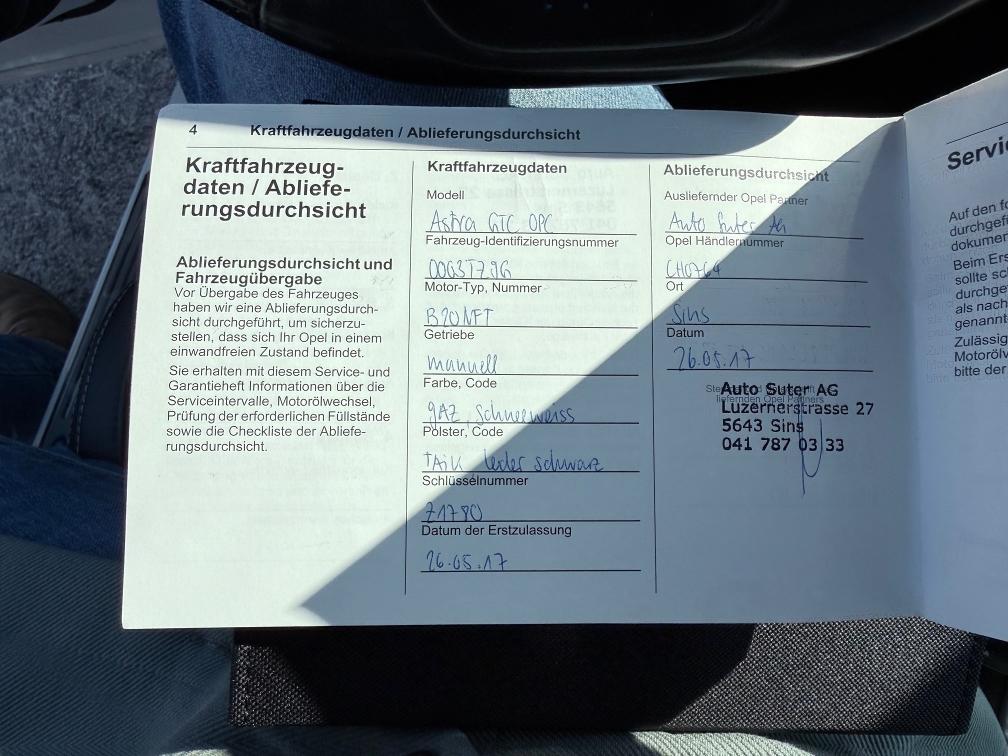 4 Kraftfahrzeugdaten / Ablieferungsdurchsicht
Kraftfahrzeug-
daten / Abliefe-
rungsdurchsicht
Ablieferungsdurchsicht und
Fahrzeugübergabe
Vor Übergabe des Fahrzeuges
haben wir eine Ablieferungsdurch-
sicht durchgeführt, um sicherzu-
stellen, dass sich Ihr Opel in einem
einwandfreien Zustand befindet.
Sie erhalten mit diesem Service- und
Garantieheft Informationen über die
Serviceintervalle, Motorölwechsel,
Prüfung der erforderlichen Füllstände
sowie die Checkliste der Abliefe-
rungsdurchsicht.
Kraftfahrzeugdaten
Modell
Astra GTC OPC
Fahrzeug-Identifizierungsnummer
Motor-Typ, Nummer
B20NFT
Getriebe
manuell
Farbe, Code
gAZ, Schneeweiss
Polster, Code
TAIK Leder schwarz
Schlüsselnummer
Z1780
Datum der Erstzulassung
26.05.17
Ablieferungsdurchsicht
Ausliefernder Opel Partner
Auto Suter AG
Opel Händlernummer
CH0764
Ort
Sins
Datum
26.05.17
liefernden Opel Partners
Auto Suter AG
Luzernerstrasse 27
5643 Sins
041 787 03 33
Auf den
durchgef
dokumen
Beim Ers
sollte sc
durchge
als nach
genannt
Zulässig
Motorölw
bitte der